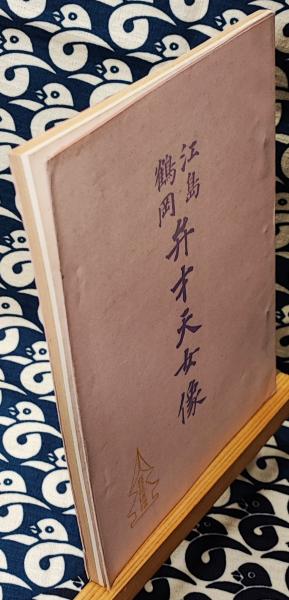 江島
鶴岡
弁才天女像